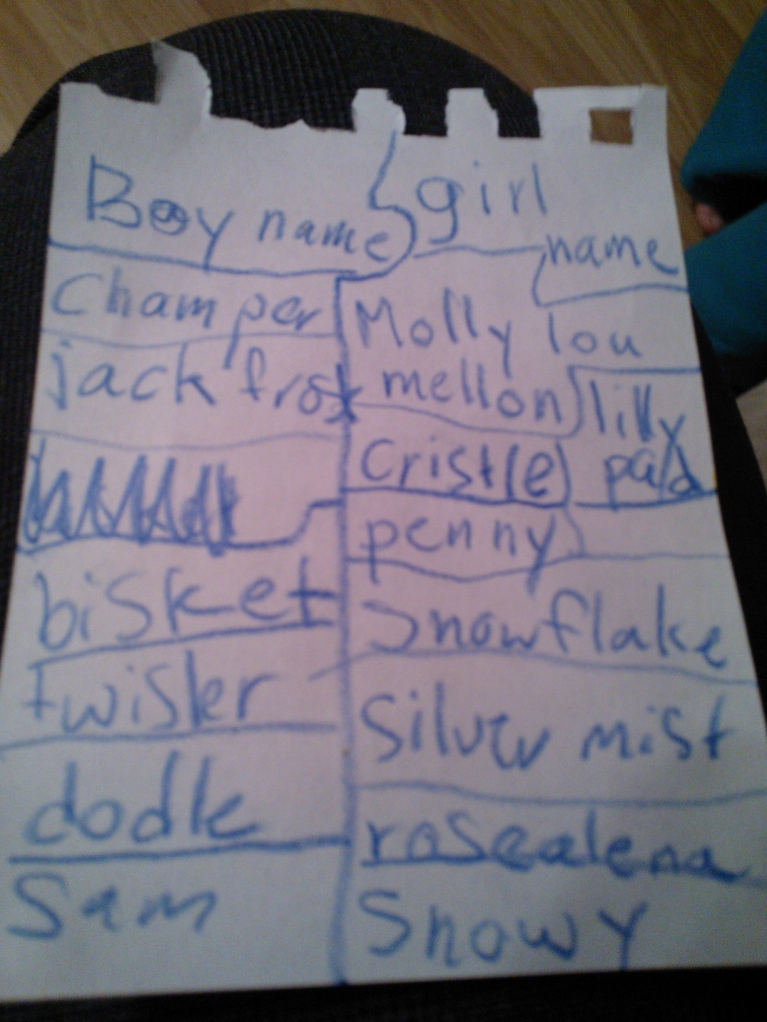 Boy name
Champer
jack frost
bisket
twister
dodle
Sam
girl
name
Molly lou
mellon
lilly
pad
Cristle
penny
Snowflake
Silver mist
rosealena
Snowy